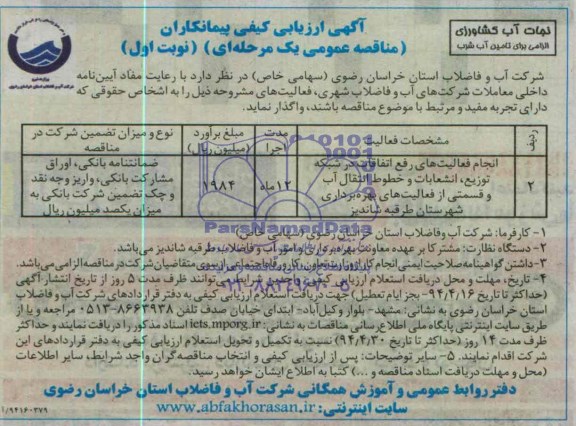 نجات آب کشاورزی
الزامی برای تامین آب شرب
آگهی ارزیابی کیفی پیمانکاران
(مناقصه عمومی یک مرحله‌ای) (نوبت اول)
شرکت آب و فاضلاب استان خراسان رضوی (سهامی خاص) در نظر دارد با رعایت مفاد آیین‌نامه
داخلی معاملات شرکت‌های آب و فاضلاب شهری، فعالیت‌های مشروحه ذیل را به اشخاص حقوقی که
دارای تجربه مفید و مرتبط با موضوع مناقصه باشند، واگذار نماید.
ردیف
مشخصات فعالیت
مدت اجرا
مبلغ برآورد (میلیون ریال)
نوع و میزان تضمین شرکت در مناقصه
۲
انجام فعالیت‌های رفع اتفاقات در شبکه
توزیع، انشعابات و خطوط انتقال آب
و قسمتی از فعالیت‌های بهره‌برداری
شهرستان طرقبه شاندیز
۱۲ ماه
۱۹۸۴
ضمانتنامه بانکی، اوراق
مشارکت بانکی، واریز وجه نقد
و چک تضمین شرکت بانکی به
میزان یکصد میلیون ریال
ParsNamadData
۱- کارفرما: شرکت آب وفاضلاب استان خراسان رضوی (سهامی خاص).
۲- دستگاه نظارت: مشترکا بر عهده معاونت بهره‌برداری و امور آب و فاضلاب طرقبه شاندیز می‌باشد.
۳- داشتن گواهینامه صلاحیت ایمنی انجام کار از وزارت تعاون، کار و رفاه اجتماعی از سوی متقاضیان شرکت در مناقصه الزامی می‌باشد.
۴- تاریخ، مهلت و محل دریافت استعلام ارزیابی کیفی: واجدین شرایط می‌توانند ظرف مدت ۵ روز از تاریخ انتشار آگهی
(حداکثر تا تاریخ ۹۴/۴/۱۶- بجز ایام تعطیل) جهت دریافت استعلام ارزیابی کیفی به دفتر قراردادهای شرکت آب و فاضلاب
استان خراسان رضوی به نشانی: مشهد- بلوار وکیل‌آباد- ابتدای خیابان صدف تلفن ۸۶۶۳۹۳۸-۰۵۱۳ مراجعه و یا از
طریق سایت اینترنتی پایگاه ملی اطلاع‌رسانی مناقصات به نشانی: iets.mporg.ir اسناد مذکور را دریافت نمایند و حداکثر
ظرف مدت ۱۴ روز (حداکثر تا تاریخ ۹۴/۴/۳۰) نسبت به تکمیل و تحویل استعلام ارزیابی کیفی به دفتر قراردادهای این
شرکت اقدام نمایند. ۵- سایر توضیحات: پس از ارزیابی کیفی و انتخاب مناقصه‌گران واجد شرایط، سایر اطلاعات
(محل و مهلت دریافت اسناد مناقصه و ...) کتبا به اطلاع ایشان خواهد رسید.
دفتر روابط عمومی و آموزش همگانی شرکت آب و فاضلاب استان خراسان رضوی
سایت اینترنتی: www.abfakhorasan.ir